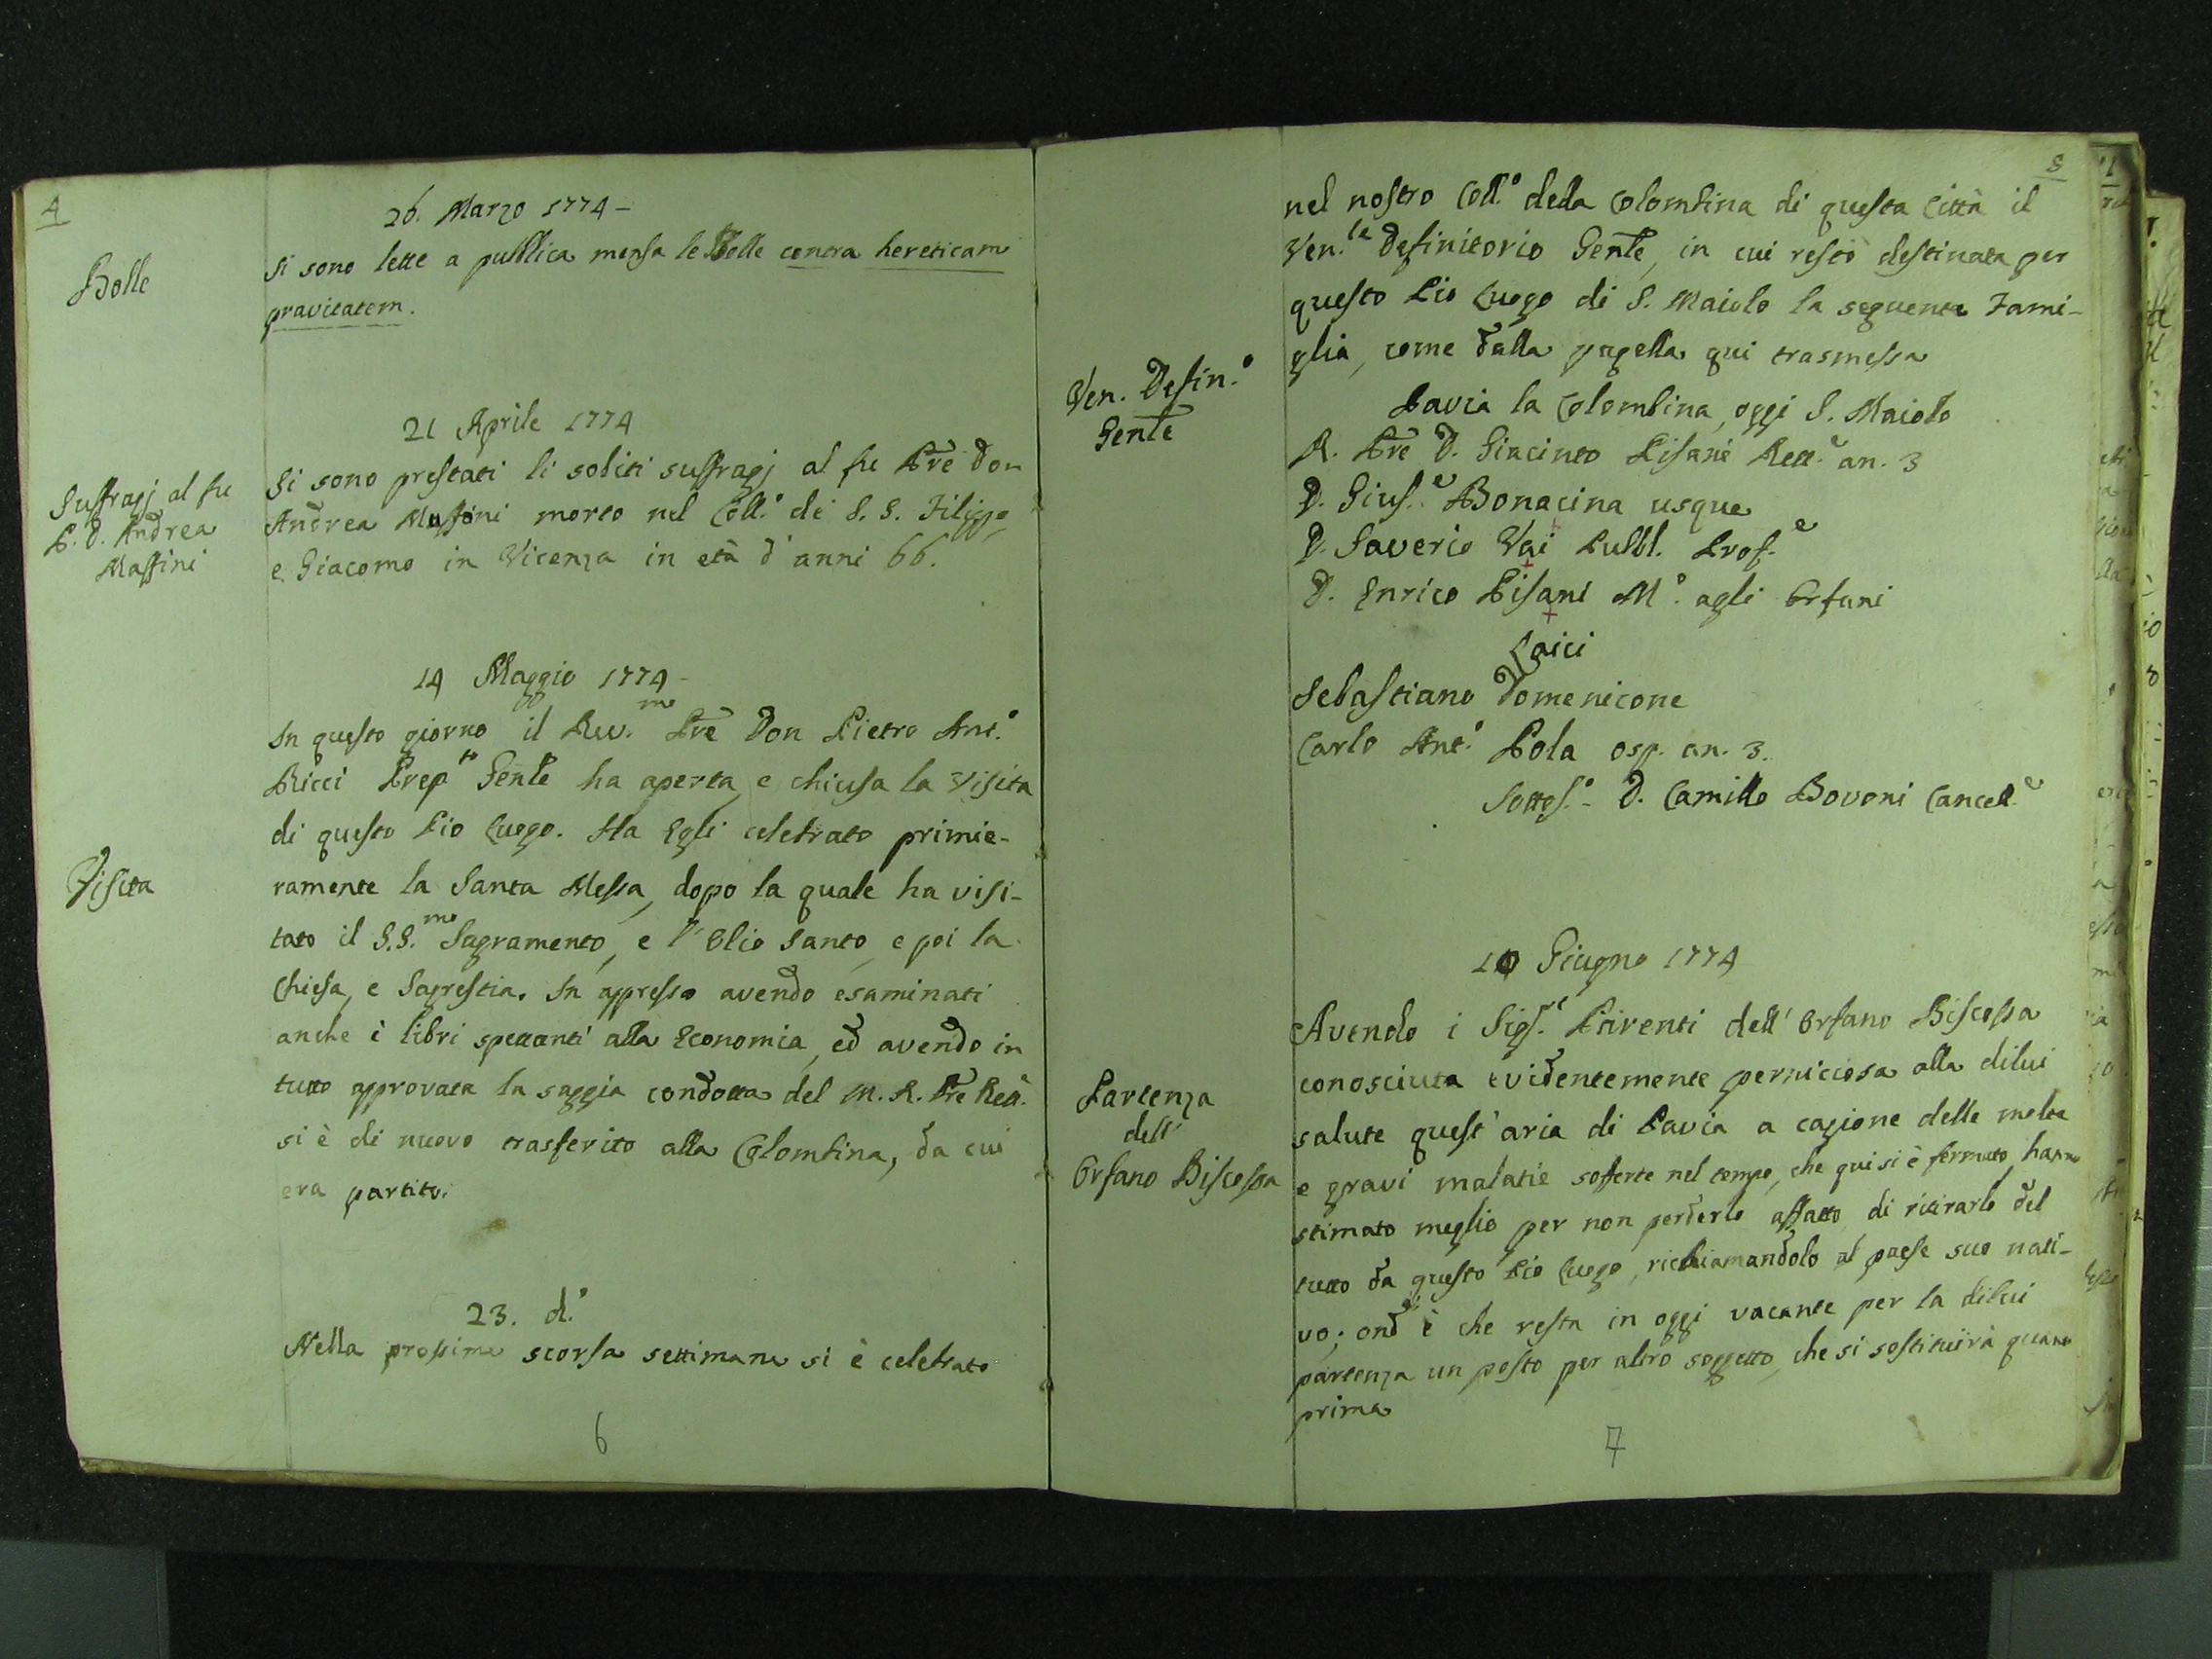 4
26. Marzo 1774 -
Bolle
Si sono lette a pubblica mensa le Bolle contra hereticam
pravitatem.
21 Aprile 1774
Suffragj al fu
P. D. Andrea
Massini
Si sono prestati li soliti suffragj al fu Pre Don
Andrea Massini morto nel Coll.o dei S. S. Filippo,
e Giacomo in Vicenza in età d'anni 66.
14 Maggio 1774 -
Visita
In questo giorno il Rev.mo Pre Don Pietro Ant.o
Ricci Prep.to Genle ha aperta, e chiusa la Visita
di questo Pio Luogo. Ha Egli celebrato primie-
ramente la Santa Messa, dopo la quale ha visi-
tato il S.S.mo Sagramento, e l'Olio Santo, e poi la
Chiesa, e Sagrestia. In appresso avendo esaminati
anche i libri spettanti alla Economia, ed avendo in
tutto approvata la saggia condotta del M. R. Pre Rett.e
si è di nuovo trasferito alla Colombina, da cui
era partito.
23. d.o
Nella prossima scorsa settimana si è celebrato
6
5
nel nostro Coll.o della Colombina di questa Città il
Ven.le Definitorio Genle, in cui restò destinata per
questo Pio Luogo di S. Maiolo la seguente Fami-
glia, come dalla pagella qui trasmessa
Ven. Defin.o
Genle
Pavia la Colombina, oggi S. Maiolo
R. Pre D. Giacinto Pisani Rett.e an. 3
D. Gius.e Bonacina usque
D. Saverio Vai Pubbl. Prof.e
D. Enrico Pisani M.o agli Orfani
Laici
Sebastiano Domenicone
Carlo Ant.o Pola osp. an. 3.
Sottos.o - D. Camillo Bovoni Cancell.e
10 Giugno 1774
Partenza
dell'
Orfano Biscossa
Avendo i Sigg.ri Parenti dell'Orfano Biscossa
conosciuta evidentemente perniciosa alla dilui
salute quest'aria di Pavia a cagione delle molte
e gravi malatie sofferte nel tempo, che qui si è fermato, hanno
stimato meglio per non perderlo affatto, di ritirarlo del
tutto da questo Pio Luogo, richiamandolo al paese suo nati-
vo; ond'è che resta in oggi vacante per la dilui
partenza un posto per altro soggetto, che si sostituirà quanto
prima
7